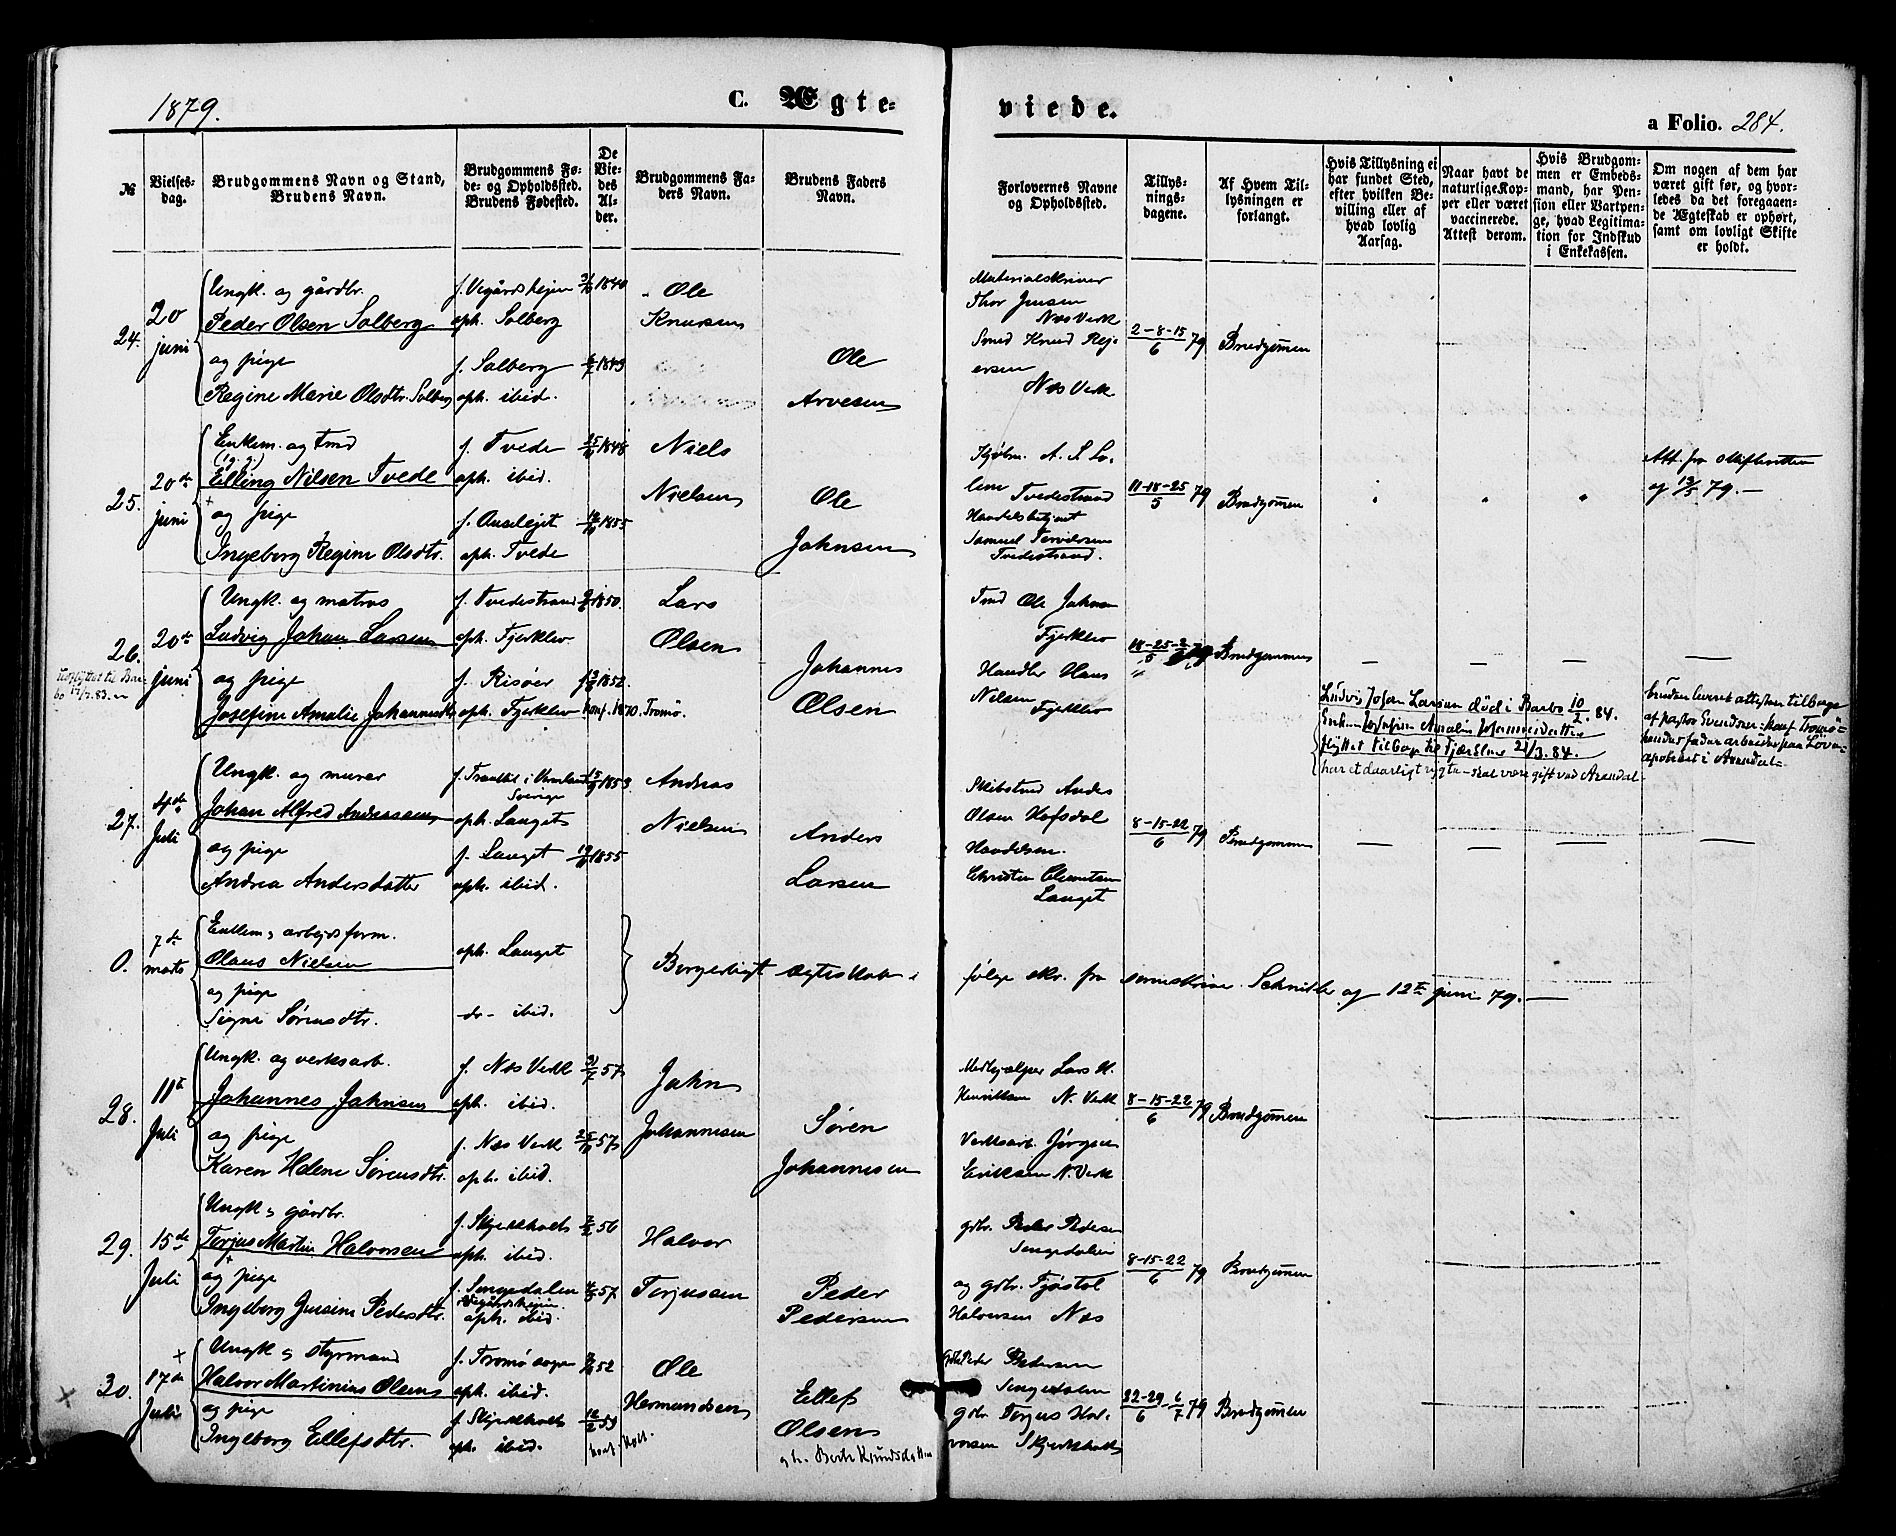 1879.
C. Ægte-
viede.
a Folio. 284.
№
Vielses-
dag.
Brudgommens Navn og Stand,
Brudens Navn.
Brudgommens Fø-
de- og Opholdssted.
Brudens Fødested.
De
Vie-
des
Al-
der.
Brudgommens Fa-
ders Navn.
Brudens Faders
Navn.
Forlovernes Navne
og Opholdssted.
Tillys-
nings-
dagene.
Af Hvem Til-
lysningen er
forlangt.
Hvis Tillysning ei
har fundet Sted,
efter hvilken Be-
villing eller af
hvad lovlig
Aarsag.
Naar havt de
naturlige Kop-
per eller været
vaccinerede.
Attest derom.
Hvis Brudgom-
men er Embeds-
mand, har Pen-
sion eller Vartpen-
ge, hvad Legitima-
tion for Indskud
i Enkekassen.
Om nogen af dem har
været gift før, og hvor-
ledes da det foregaaen-
de Ægteskab er ophørt,
samt om lovligt Skifte
er holdt.
24.
20
juni
Ungk. og gårdbr.
Peder Olsen Solberg
og pige
Regine Marie Olsdtr. Solberg
f. Vegårdshejen
oph. Solberg
f. Solberg
oph. ibid.
1840
1849
Ole
Knutsen
Ole
Arvesen
Materialskriver
Thor Jensen
Næs Verk
Smed Knud Rej-
ersen
Næs Verk
2-8-15/6 79
Brudgommen
25.
20de
juni
Enkem. og tmd
Elling Nilsen Tvede
og pige
Ingeborg Regine Olsdtr.
f. Tvede
oph. ibid.
oph. Tvede
1848
1855
Niels
Nielsen
Ole
Johnsen
Kjøbm. A. S. Lo-
Tvedestrand
Handelsbetjent
Samuel
Tvedestrand.
11-18-25/5 79
Brudgommen
Att. fra Skifteretten
af 19/5 79.-
26.
20de
juni
Ungk. og matros
Ludvig Johan Larsen
og pige
Josefine Amalie Johannesdtr
f. Tvedestrand
oph. Fjerklev
f. Risøer
oph. Fjerklev
1850.
1852.
konf. 1870. Tromø.
Lars
Olsen
Johannes
Olsen
Tmd Ole Johnsen
Fjerklev
Handler Hans
Nilsen
Fjerklev
Brudgommen
Ludvig Johan Larsen død i Barbo 10/2. 84.
Enken Josefine Amalie Johannesdatter
flyttet tilbage til Fjærklev 21/3. 84.
har et daarligt rygte - skal være gift ved Arendal.
bruden leveret attesten tilbage
af pastor Svendsen: konf. Tromø-
hendes fader arbeider paa Løve-
apotheket i Arendal.-
27.
4de
Juli
Ungk. og murer
Johan Alfred Andreassen
og pige
Andrea Andersdatter
Sverige
oph. Lauget
f. Lauget
oph. ibid.
1853
1855
Andreas
Nielsen
Anders
Larsen
Skibstmd Anders
Olsen Hofsdal
Handelsm.
Christen Clemetsen
Lauget
8-15-22/6 79
Brudgommen
0.
7de
marts
Enkem. & arbejdsform.
Olaus Nielsen
og pige
Signe Sørensdtr.
oph. Lauget
do- ibid.
Borgerligt ægteskab i
følge skr. fra sorenskriver Schnitler af 12te juni 79.-
28.
11te
Juli
Ungk. og verksarb.
Johannes Johnsen
og pige
Karen Helene Sørensdtr.
f. Næs Verk
oph. ibid.
f. Næs Verk
oph. ibid.
57
57
John
Johannesen
Søren
Johannesen
Medhjælper Lars H.
Henriksen N. Verk
Verksarb. Jørgen
Eriksen N. Verk
8-15-22/6 79
Brudgommen
29.
15de
Juli
Ungk. & gårdbr.
Torjus Martin Halvorsen
og pige
Ingeborg Jensine Pedersdtr.
f. Skjerkholt
oph. ibid.
f. Songedalen
Vegårdshejen
oph. ibid.
56
57
Halvor
Torjussen
Peder
Pedersen
gdbr. Peder Pedersen
Songedalen
og gdbr. Tjøstol
Halvorsen Næs
8-15-22/6 79
Brudgommen
30.
17de
Juli
Ungk. & styrmand
Halvor Martinius Olsen
og pige
Ingeborg Ellefsdtr.
f. Tromø sogn
oph. ibid.
f. Skjerkholt
oph. ibid.
52
59
konf. Holt.
Ole
Hermundsen
Ellef
Olsen
og h. Berte Knudsdatter
Gdbr. Peder Pedersen
Songedalen
gdbr. Torjus Hal-
vorsen Skjerkholt
22-29/6-6/7 79
Brudgommen